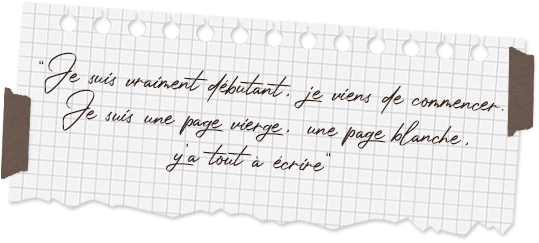 "Je suis vraiment débutant, je viens de commencer.
Je suis une page vierge, une page blanche,
y'a tout à écrire"